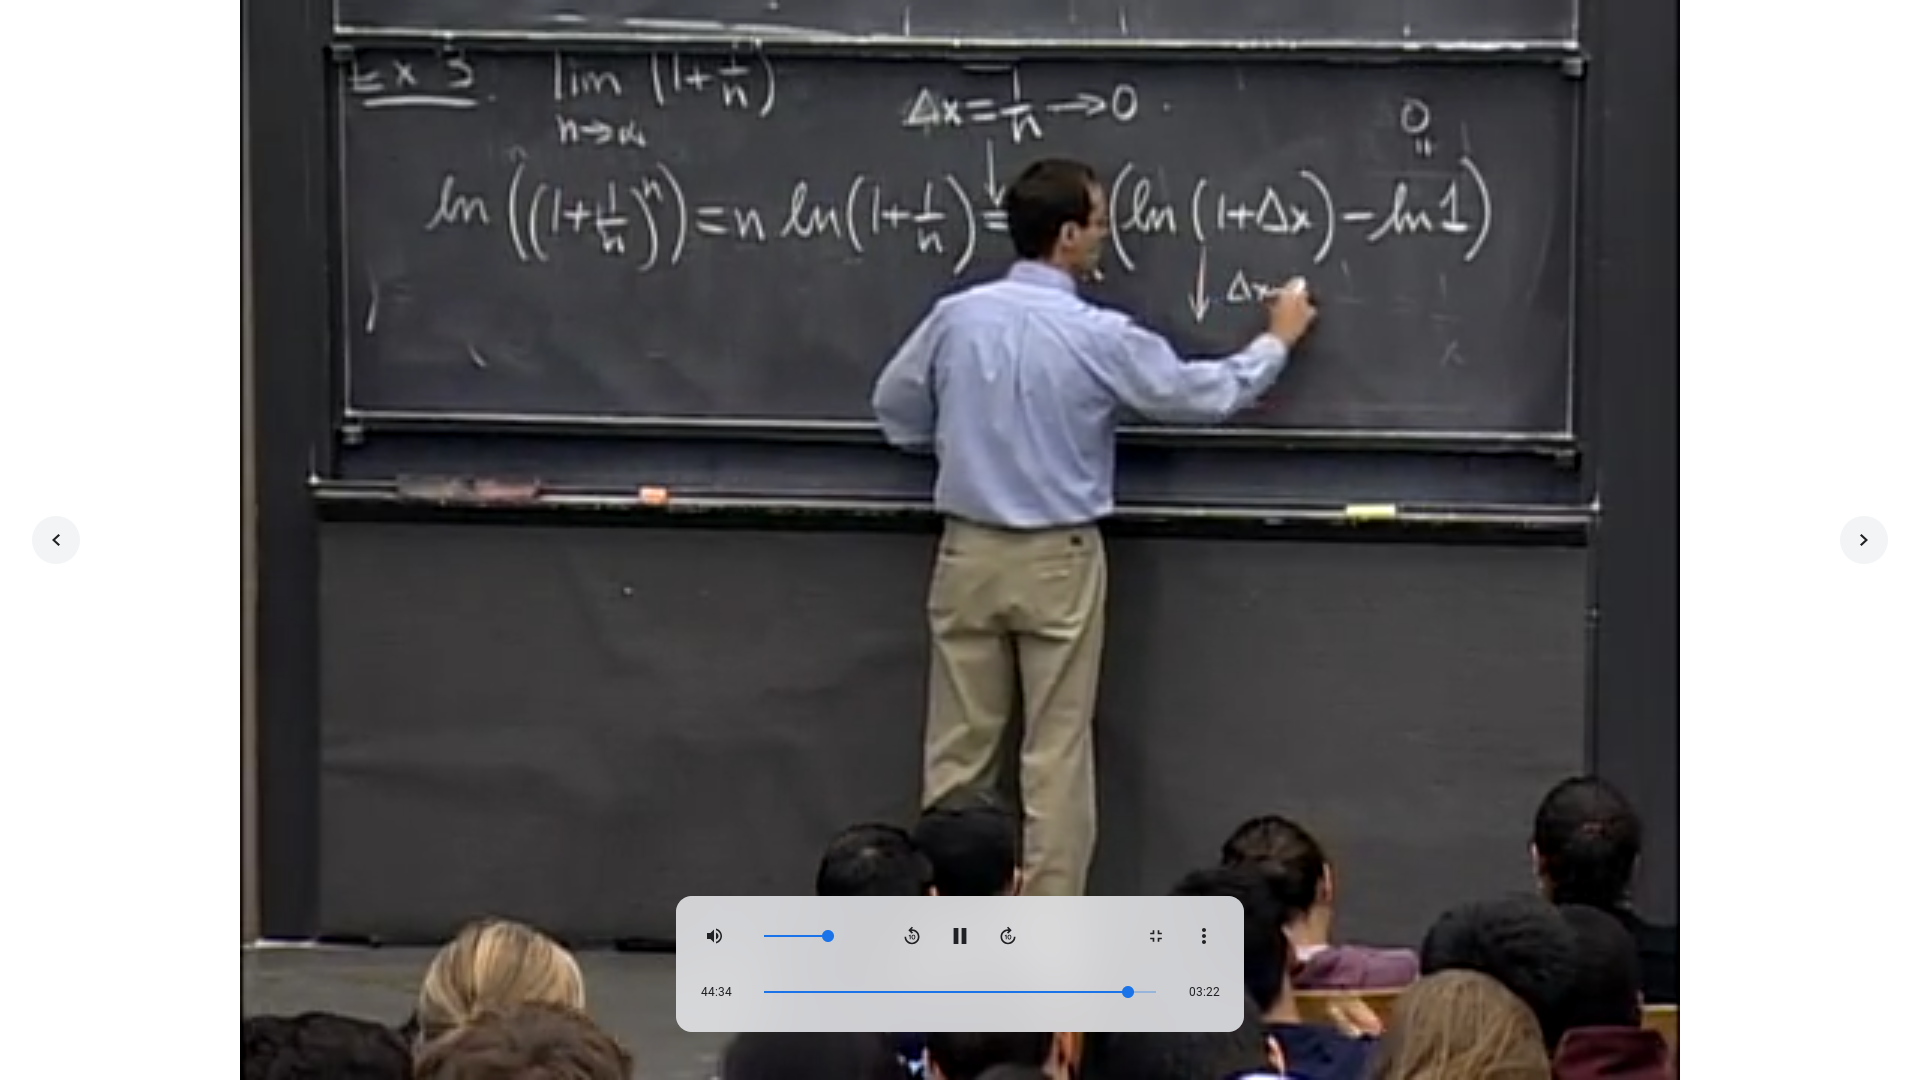 Ex 3. lim (1+1/n) Δx=1/n→0
n→∞
0
"
ln((1+1/n)^n)=n ln(1+1/n)= (ln(1+Δx)-ln1)
↓ Δx
44:34 03:22